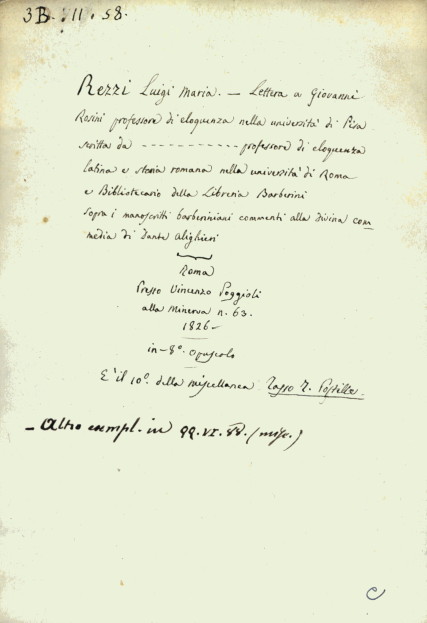 3B. II. 58.
Rezzi Luigi Maria. — Lettera a Giovanni
Rosini professore di eloquenza nella università di Pisa
scritta da - - - - - - - - - - - professore di eloquenza
latina e storia romana nella università di Roma
e Bibliotecario della Libreria Barberini
sopra i manoscritti barberiniani commenti alla Divina com
media di Dante Alighieri
Roma
Presso Vincenzo Poggioli
alla Minerva n. 63.
1826 –
in-8º. opuscolo
È il 10º. della miscellanea Tasso T. Postille.
– Altro exempl. in QQ. VI. (misc.)
C